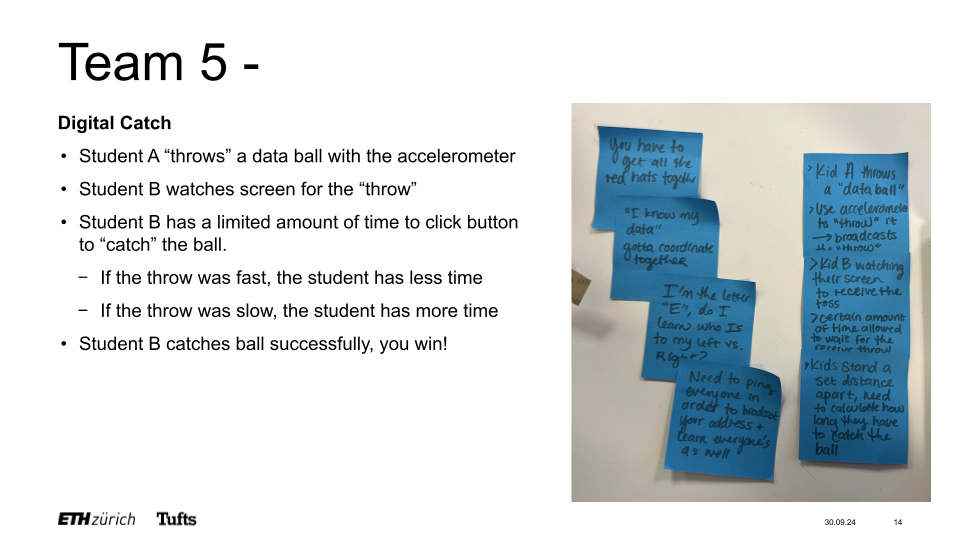 Team 5 -
Digital Catch
• Student A “throws” a data ball with the accelerometer
• Student B watches screen for the “throw”
• Student B has a limited amount of time to click button
to “catch” the ball.
− If the throw was fast, the student has less time
− If the throw was slow, the student has more time
• Student B catches ball successfully, you win!
You have to
get all the
red hats together
"I know my
data"
gotta coordinate
together
I'm the letter
"E", do I
learn who is
to my left vs.
Right?
Need to ping
everyone in
order to broadcast
your address +
learn everyone's
as well
> Kid A throws
a "data ball"
> Use accelerometer
to "throw" it
→ broadcasts
the "throw"
> Kid B watching
their screen
to receive the
toss
> certain amount
of time allowed
to wait for the
receive throw
> Kids stand a
set distance
apart, need
to calculate how
long they have
to catch the
ball
ETH zürich Tufts
30.09.24 14